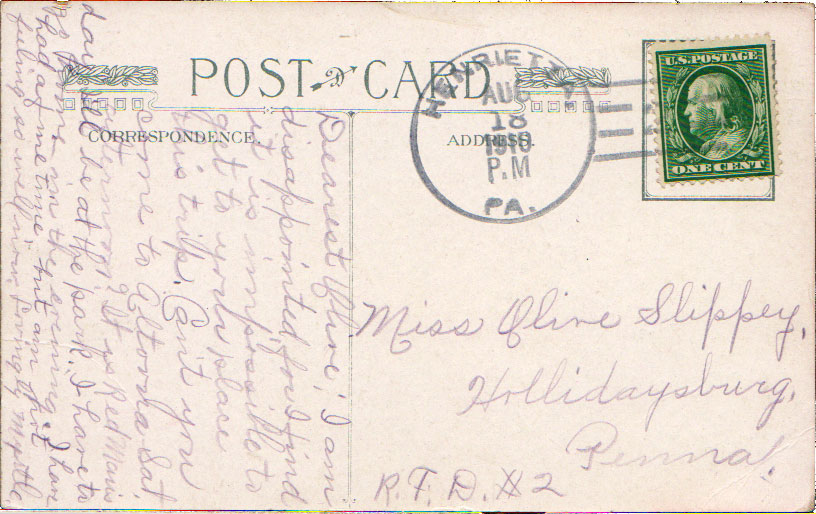 POST CARD
CORRESPONDENCE.
ADDRESS.
HENRIETTA
AUG
18
1910
P.M
PA.
U.S. POSTAGE
ONE CENT
Dearest Olive; I am
disappointed for I find
it is impossible to
get to your place
this trip. Can't you
come to Altoona Sat.
afternoon? It is Red Mans
day. Will be at the park. I have to
go home in the evening. I have
had a time but am not
feeling so well now. Lovingly, Myrtle
Miss Olive Slippey,
Hollidaysburg,
Penna.
R.F.D. #2